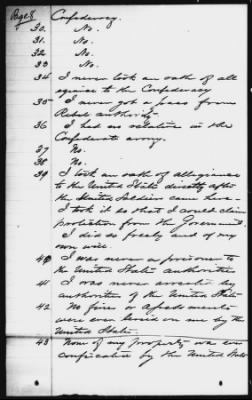 Page 8
Confederacy.
30. No.
31. No.
32. No.
33 No.
34 I never took an oath of all
egiance to the Confederacy
35 I never got a pass from
Rebel authority
36 I had no relative in the
Confederate army.
37 No.
38 No.
39 I took an oath of allegiance
to the United States directly after
the United Soldiers came here.
I took it so that I could claim
protection from the Government.
I did so freely and of my
own will.
40 I was never a prisoner to
the United States authorities
41 I was never arrested by
authorities of the United States
42 No fines or assessments
were ever levied on me by the
United States.
43 None of my property was ever
confiscated by the United States